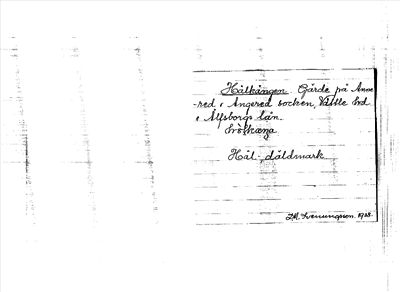 Hålkången. Gärde på Anne
-red i Angered socken, Vättle hd
i Älfsborgs län.
Hål- däldmark.
J.M. Svenungson. 1928.